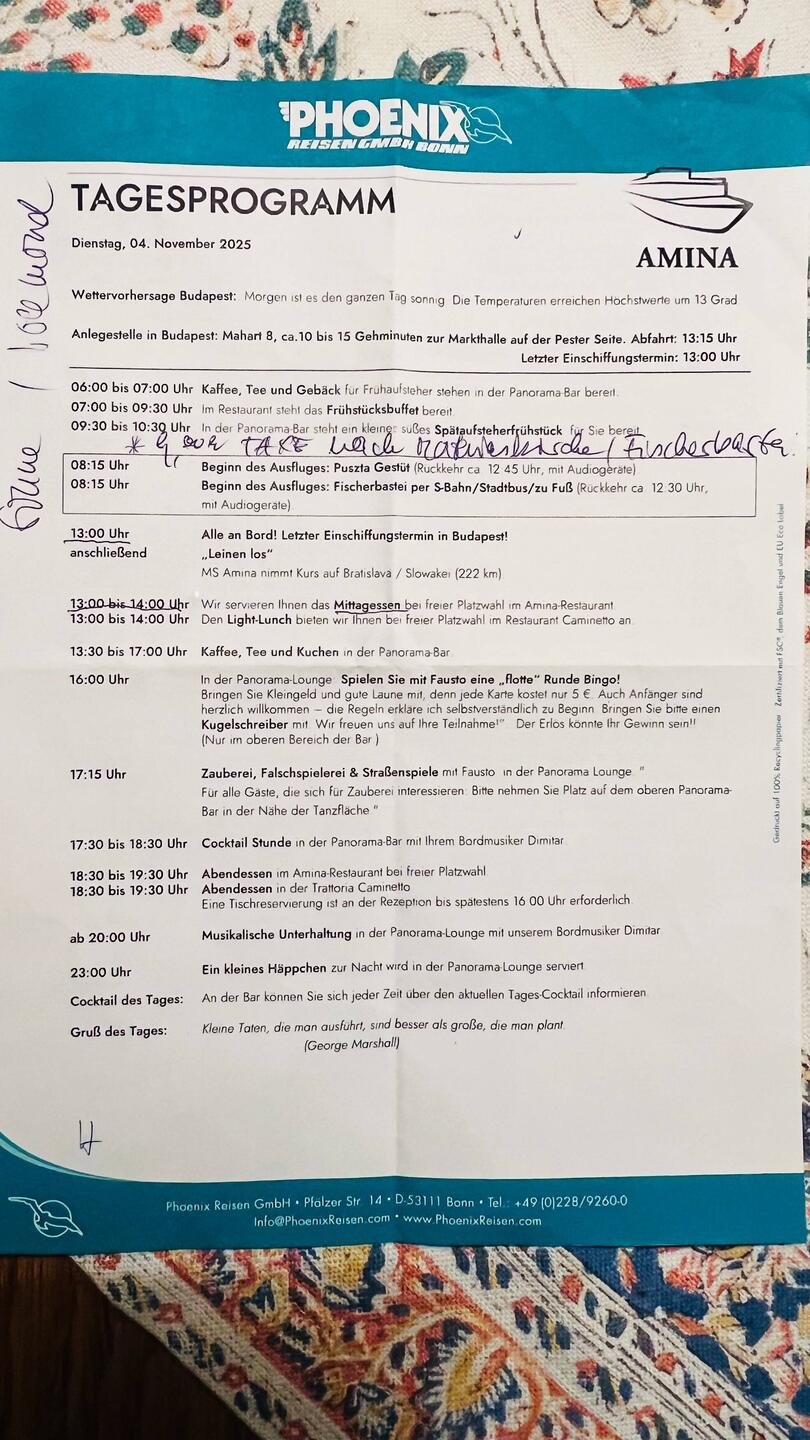 PHOENIX
REISEN GMBH BONN
TAGESPROGRAMM
Dienstag, 04. November 2025
AMINA
Wettervorhersage Budapest: Morgen ist es den ganzen Tag sonnig Die Temperaturen erreichen Höchstwerte um 13 Grad
Anlegestelle in Budapest: Mahart 8, ca.10 bis 15 Gehminuten zur Markthalle auf der Pester Seite. Abfahrt: 13:15 Uhr
Letzter Einschiffungstermin: 13:00 Uhr
06:00 bis 07:00 Uhr Kaffee, Tee und Gebäck für Frühaufsteher stehen in der Panorama-Bar bereit.
07:00 bis 09:30 Uhr Im Restaurant steht das Frühstücksbuffet bereit
09:30 bis 10:30 Uhr In der Panorama-Bar steht ein kleines süßes Spätaufsteherfrühstück für Sie bereit
TAXE nach / Fischerbastei
08:15 Uhr Beginn des Ausfluges: Puszta Gestüt (Rückkehr ca 12 45 Uhr, mit Audiogeräte)
08:15 Uhr Beginn des Ausfluges: Fischerbastei per S-Bahn/Stadtbus/zu Fuß (Rückkehr ca 12.30 Uhr,
mit Audiogeräte)
13:00 Uhr Alle an Bord! Letzter Einschiffungstermin in Budapest!
anschließend „Leinen los“
MS Amina nimmt Kurs auf Bratislava / Slowakei (222 km)
13:00 bis 14:00 Uhr Wir servieren Ihnen das Mittagessen bei freier Platzwahl im Amina-Restaurant
13:00 bis 14:00 Uhr Den Light-Lunch bieten wir Ihnen bei freier Platzwahl im Restaurant Caminetto an
13:30 bis 17:00 Uhr Kaffee, Tee und Kuchen in der Panorama-Bar
16:00 Uhr In der Panorama-Lounge Spielen Sie mit Fausto eine „flotte“ Runde Bingo!
Bringen Sie Kleingeld und gute Laune mit, denn jede Karte kostet nur 5 €. Auch Anfänger sind
herzlich willkommen – die Regeln erkläre ich selbstverständlich zu Beginn. Bringen Sie bitte einen
Kugelschreiber mit. Wir freuen uns auf Ihre Teilnahme!" Der Erlös könnte Ihr Gewinn sein!!
(Nur im oberen Bereich der Bar )
17:15 Uhr Zauberei, Falschspielerei & Straßenspiele mit Fausto in der Panorama Lounge "
Für alle Gäste, die sich für Zauberei interessieren. Bitte nehmen Sie Platz auf dem oberen Panorama-
Bar in der Nähe der Tanzfläche "
17:30 bis 18:30 Uhr Cocktail Stunde in der Panorama-Bar mit Ihrem Bordmusiker Dimitar
18:30 bis 19:30 Uhr Abendessen im Amina-Restaurant bei freier Platzwahl
18:30 bis 19:30 Uhr Abendessen in der Trattoria Caminetto
Eine Tischreservierung ist an der Rezeption bis spätestens 16 00 Uhr erforderlich.
ab 20:00 Uhr Musikalische Unterhaltung in der Panorama-Lounge mit unserem Bordmusiker Dimitar
23:00 Uhr Ein kleines Häppchen zur Nacht wird in der Panorama-Lounge serviert
Cocktail des Tages: An der Bar können Sie sich jeder Zeit über den aktuellen Tages-Cocktail informieren
Gruß des Tages: Kleine Taten, die man ausführt, sind besser als große, die man plant.
(George Marshall)
Gedruckt auf 100% Recyclingpapier Zertifiziert mit FSC®, dem Blauen Engel und EU Eco Label
Phoenix Reisen GmbH • Pfälzer Str. 14 • D-53111 Bonn • Tel.: +49 (0)228/9260-0
Info@PhoenixReisen.com • www.PhoenixReisen.com